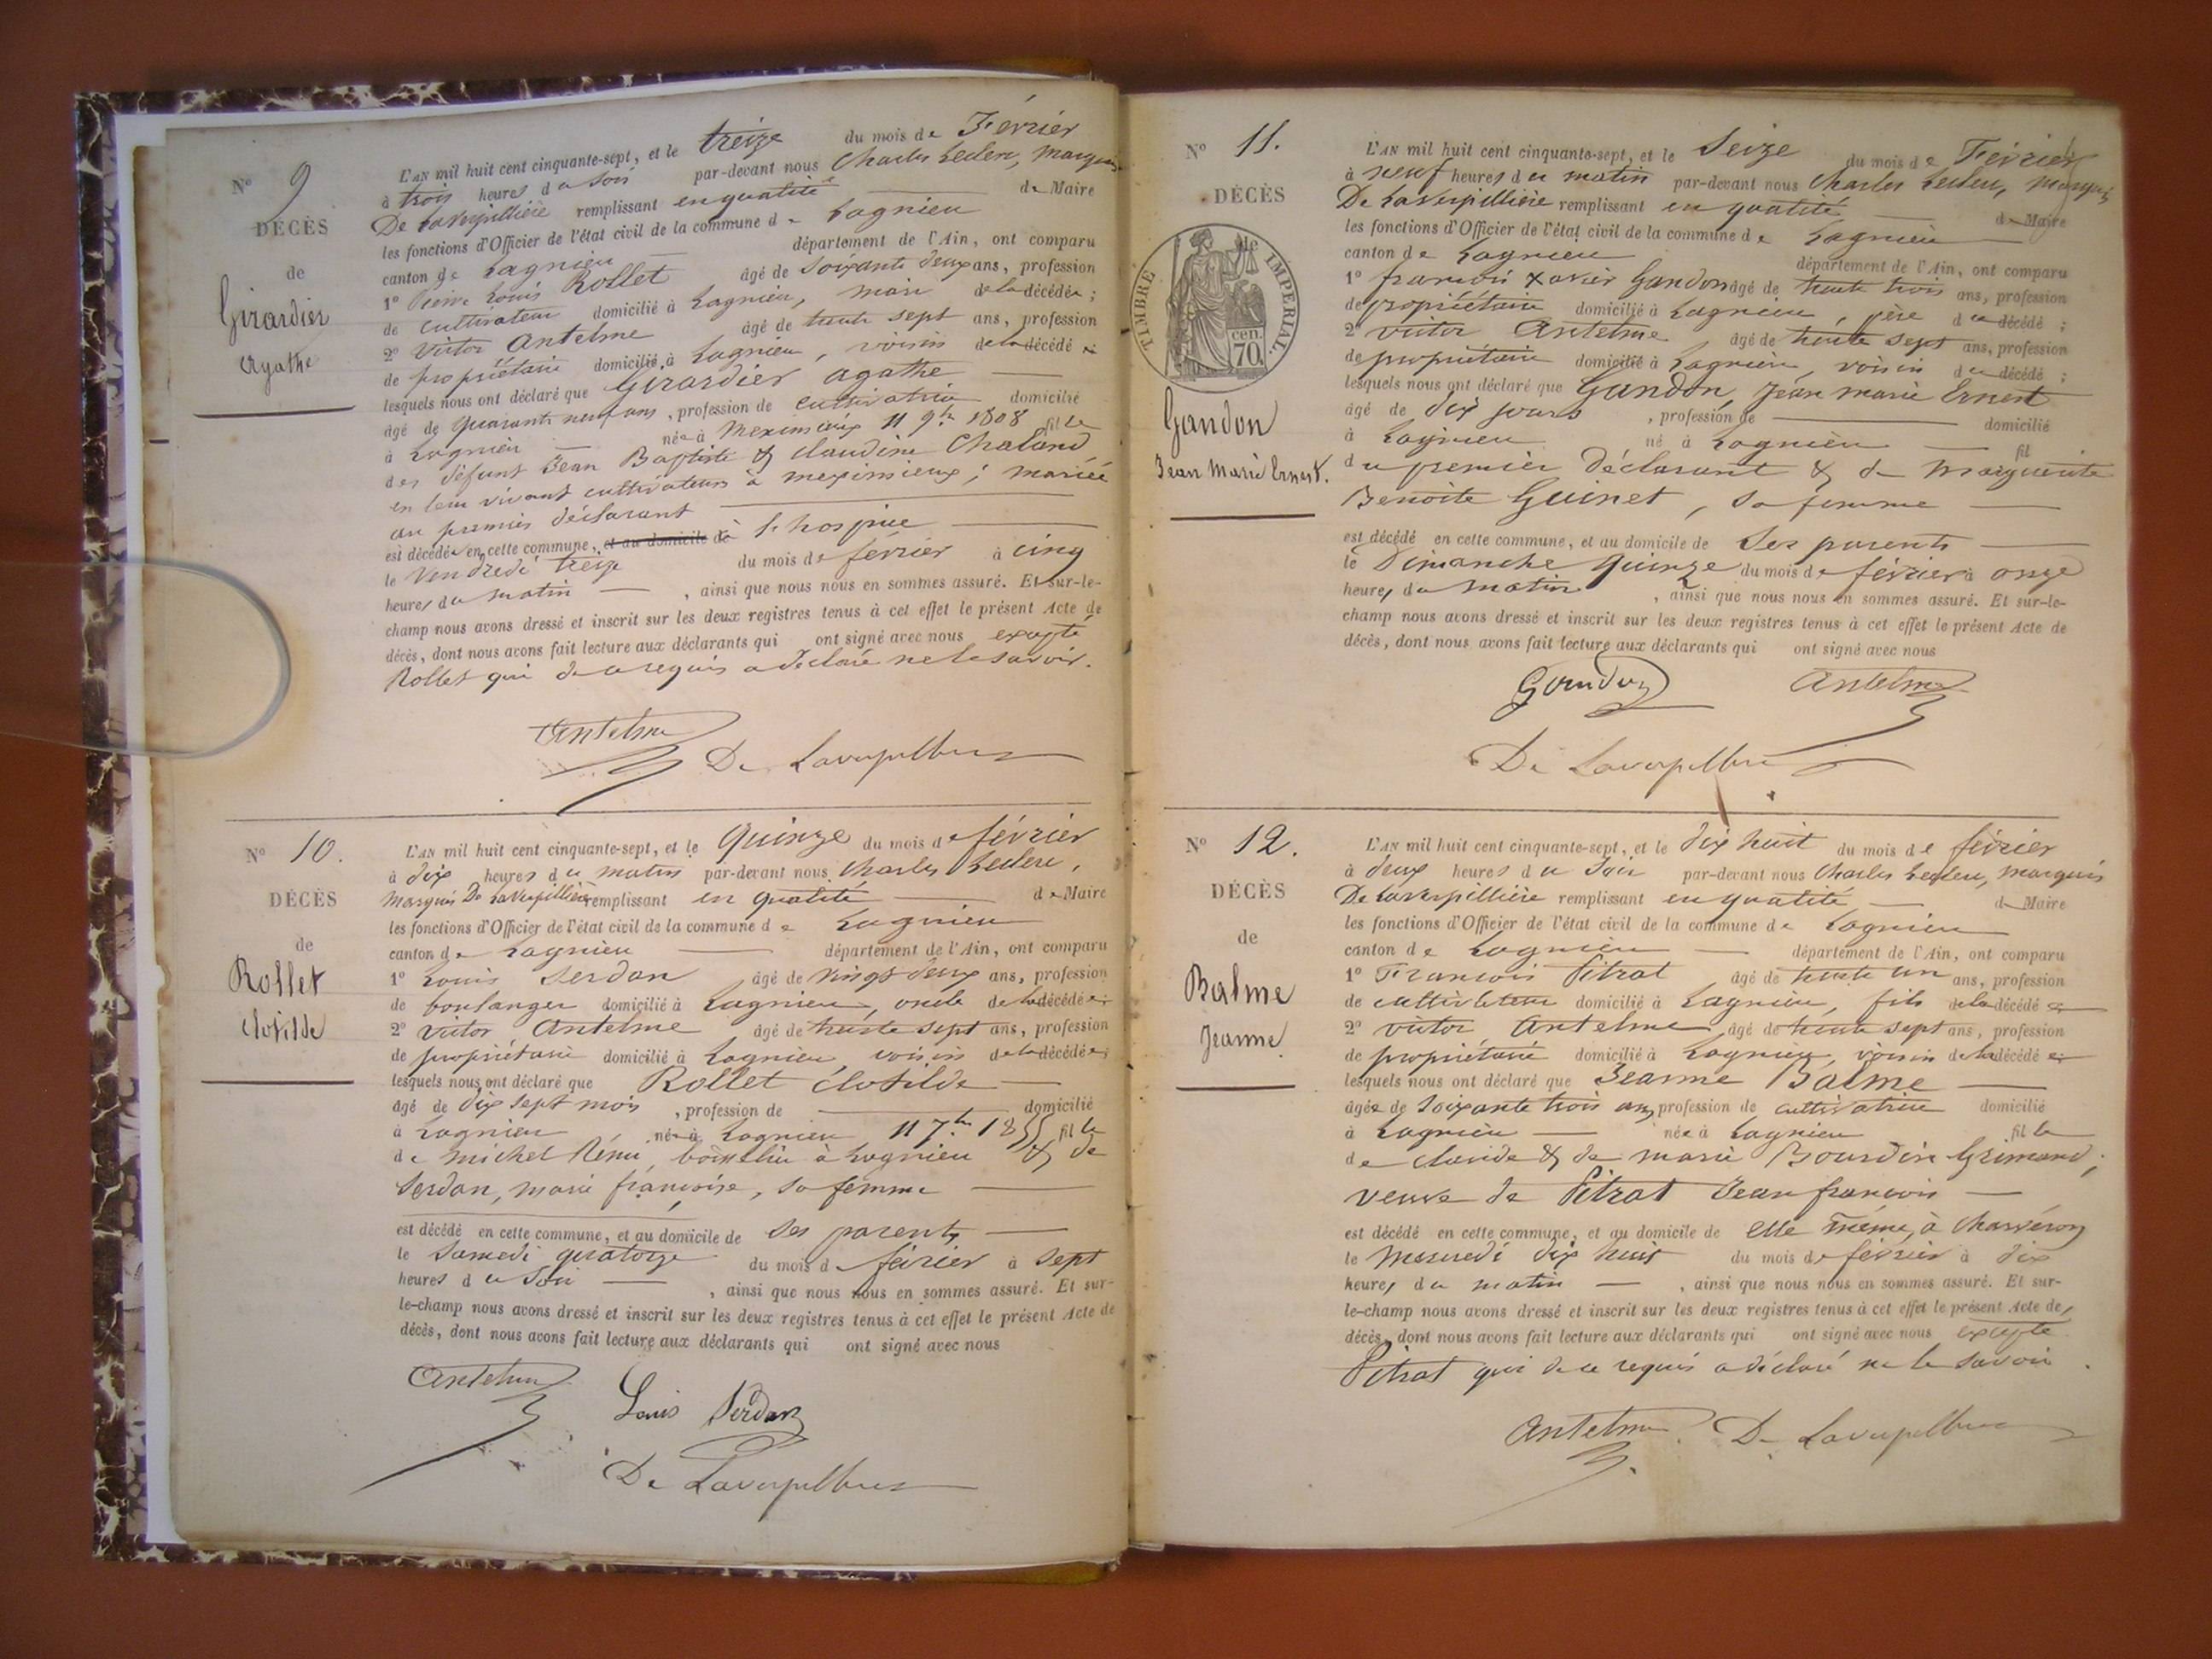 N° 9
DÉCÈS
de
Girardier
Agathe
L'AN mil huit cent cinquante-sept, et le treize du mois de Février
à trois heures du soir par-devant nous Charles Leclerc, Marquis
De Laverpillière remplissant en qualité de Maire
les fonctions d'Officier de l'état civil de la commune de Lagnieu
canton de Lagnieu département de l'Ain, ont comparu
1° Pierre Louis Rollet âgé de Soixante deux ans, profession
de cultivateur domicilié à Lagnieu, mari de la décédée ;
2° Victor Antelme âgé de trente sept ans, profession
de propriétaire domicilié à Lagnieu, voisin de la décédée ;
lesquels nous ont déclaré que Girardier agathe
âgé de quarante neuf ans, profession de cultivatrice domicilié
à Lagnieu née à Meximieux 11 9bre 1808 fille
des défunts Jean Baptiste & Claudine Chaland,
en leur vivant cultivateurs à meximieux ; mariée
au premier déclarant
est décédée en cette commune, et au domicile de à l'hospice
le Vendredi treize du mois de février à cinq
heures du matin , ainsi que nous nous en sommes assuré. Et sur-le-
champ nous avons dressé et inscrit sur les deux registres tenus à cet effet le présent Acte de
décès, dont nous avons fait lecture aux déclarants qui ont signé avec nous excepté
Rollet qui de ce requis a déclaré ne le savoir.
Antelme
De Laverpilliere
N° 10.
DÉCÈS
de
Rollet
Clotilde
L'AN mil huit cent cinquante-sept, et le Quinze du mois de février
à dix heures du matin par-devant nous Charles Leclerc,
Marquis De Laverpillière remplissant en qualité de Maire
les fonctions d'Officier de l'état civil de la commune de Lagnieu
canton de Lagnieu département de l'Ain, ont comparu
1° Louis Serdon âgé de vingt deux ans, profession
de boulanger domicilié à Lagnieu, oncle de la décédée ;
2° Victor Antelme âgé de trente sept ans, profession
de propriétaire domicilié à Lagnieu, voisin de la décédée ;
lesquels nous ont déclaré que Rollet Clotilde
âgé de dix sept mois , profession de domicilié
à Lagnieu , née à Lagnieu 11 7bre 1855 fille
de michel Rému, à Lagnieu & de
Serdon, marie françoise, sa femme
est décédé en cette commune, et au domicile de ses parents
le Samedi quatorze du mois de février à sept
heures du soir , ainsi que nous nous en sommes assuré. Et sur-
le-champ nous avons dressé et inscrit sur les deux registres tenus à cet effet le présent Acte de
décès, dont nous avons fait lecture aux déclarants qui ont signé avec nous
Antelme
Louis Serdon
De Laverpilliere
N° 11.
DÉCÈS
de
TIMBRE IMPÉRIAL.
70 cen.
Gandon
Jean Marie Ernest.
L'AN mil huit cent cinquante-sept, et le Seize du mois de Février
à neuf heures du matin par-devant nous Charles Leclerc, marquis
De Laverpillière remplissant en qualité de Maire
les fonctions d'Officier de l'état civil de la commune de Lagnieu
canton de Lagnieu département de l'Ain, ont comparu
1° françois Xavier Gandon âgé de trente trois ans, profession
de propriétaire domicilié à Lagnieu, père du décédé ;
2° victor Antelme âgé de trente sept ans, profession
de propriétaire domicilié à Lagnieu, voisin du décédé ;
lesquels nous ont déclaré que Gandon, Jean marie Ernest
âgé de dix jours , profession de domicilié
à Lagnieu né à Lagnieu fil
du premier déclarant & de Marguerite
Benoîte Guinet, sa femme
est décédé en cette commune, et au domicile de Ses parents
le Dimanche Quinze du mois de février à onze
heures du matin , ainsi que nous nous en sommes assuré. Et sur-le-
champ nous avons dressé et inscrit sur les deux registres tenus à cet effet le présent Acte de
décès, dont nous avons fait lecture aux déclarants qui ont signé avec nous
Gandon
Antelme
De Laverpilliere
N° 12.
DÉCÈS
de
Balme
Jeanne
L'AN mil huit cent cinquante-sept, et le Dix huit du mois de février
à deux heures du Soir par-devant nous Charles Leclerc, marquis
De Laverpillière remplissant en qualité de Maire
les fonctions d'Officier de l'état civil de la commune de Lagnieu
canton de Lagnieu département de l'Ain, ont comparu
1° François Pitrat âgé de trente un ans, profession
de cultivateur domicilié à Lagnieu, fils de la décédée
2° victor Antelme âgé de trente sept ans, profession
de propriétaire domicilié à Lagnieu, voisin de la décédée
lesquels nous ont déclaré que Jeanne Balme
âgée de Soixante trois ans, profession de cultivatrice domicilié
à Lagnieu née à Lagnieu fille
de claude & de marie Bourdin Grimand ;
veuve de Pitrat Jean françois
est décédé en cette commune, et au domicile de elle même, à
le Mercredi dix huit du mois de février à dix
heures du matin , ainsi que nous nous en sommes assuré. Et sur-
le-champ nous avons dressé et inscrit sur les deux registres tenus à cet effet le présent Acte de
décès, dont nous avons fait lecture aux déclarants qui ont signé avec nous excepté
Pitrat qui de ce requis a déclaré ne le savoir.
Antelme
De Laverpilliere